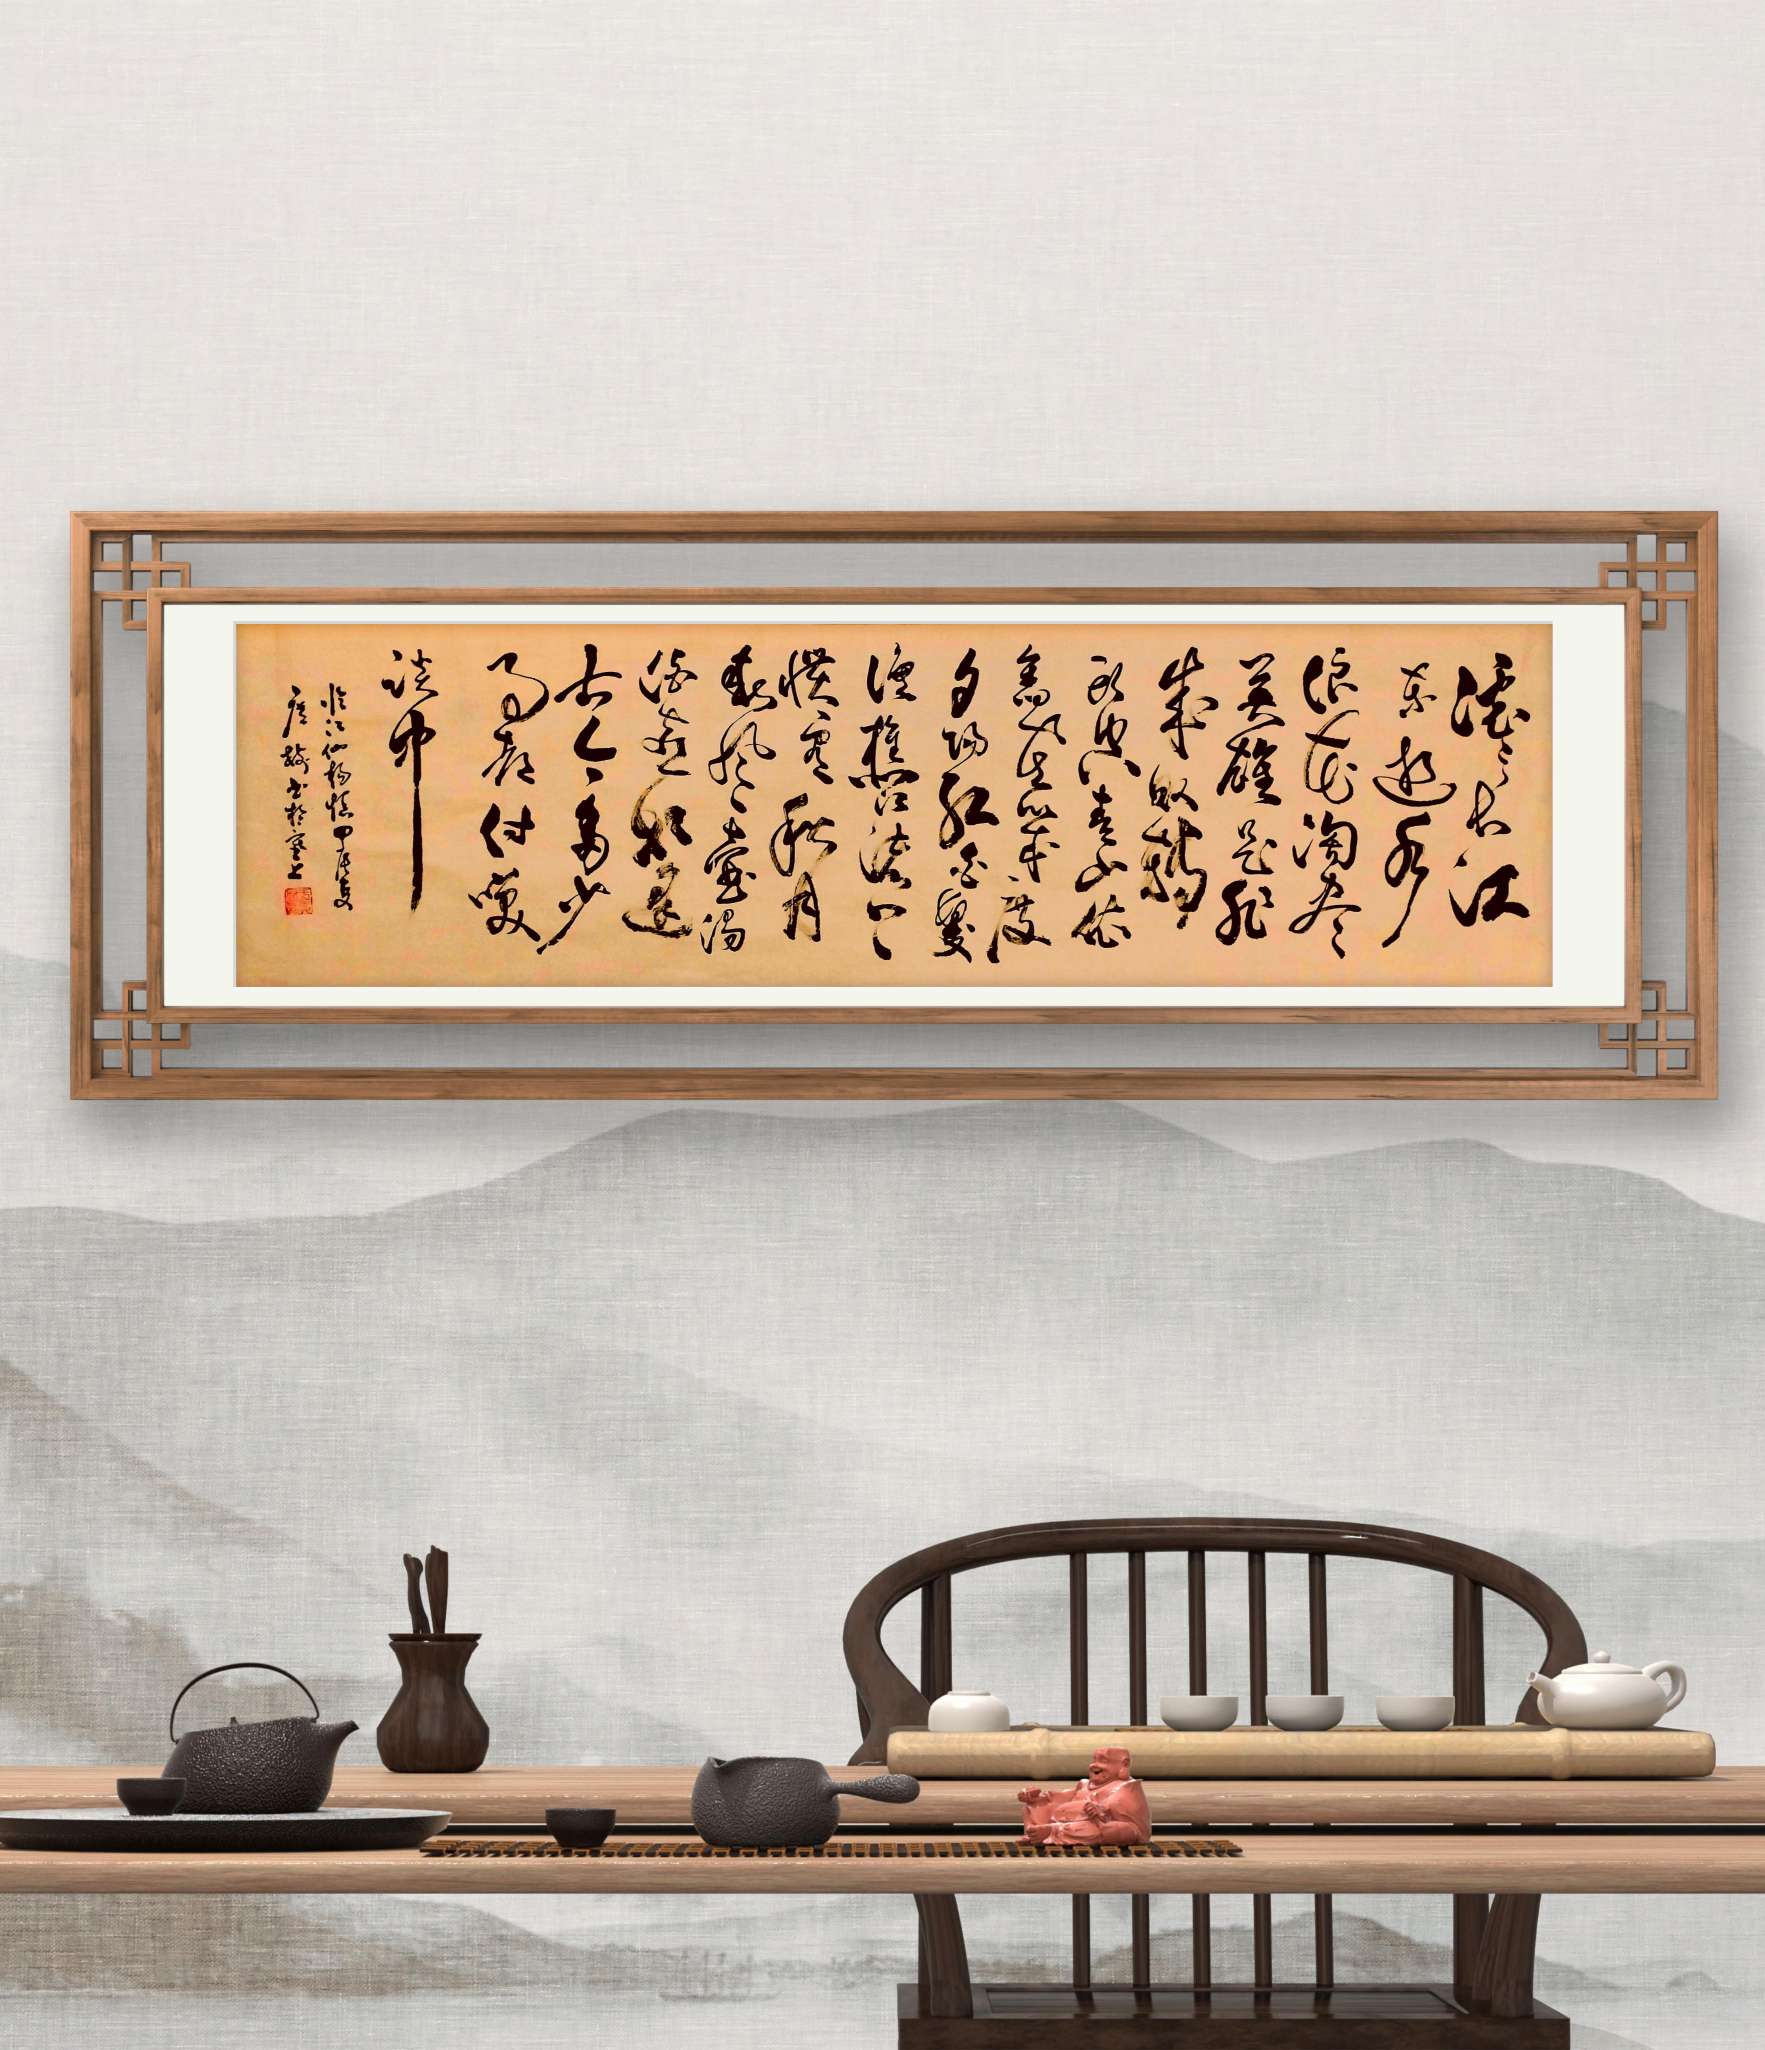 滚滚长江
东逝水
浪花淘尽
英雄是非
成败转
头空青山依
旧在几度
夕阳红白发
渔樵江渚上
惯看秋月
春风一壶浊
酒喜相逢
古今多少
事都付笑
谈中
临江仙杨慎甲辰夏
书于塞上